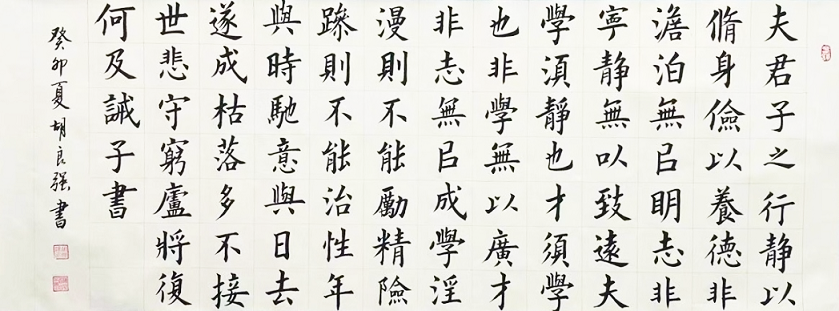 夫君子之行静以
脩身儉以養德非
澹泊無㠯眀志非
寧静無以致遠夫
學須靜也才須學
也非學無以廣才
非志無㠯成學淫
漫則不能勵精險
躁則不能治性年
與時馳意與日去
遂成枯落多不接
世悲守窮廬將復
何及誡子書
癸卯夏胡良强書